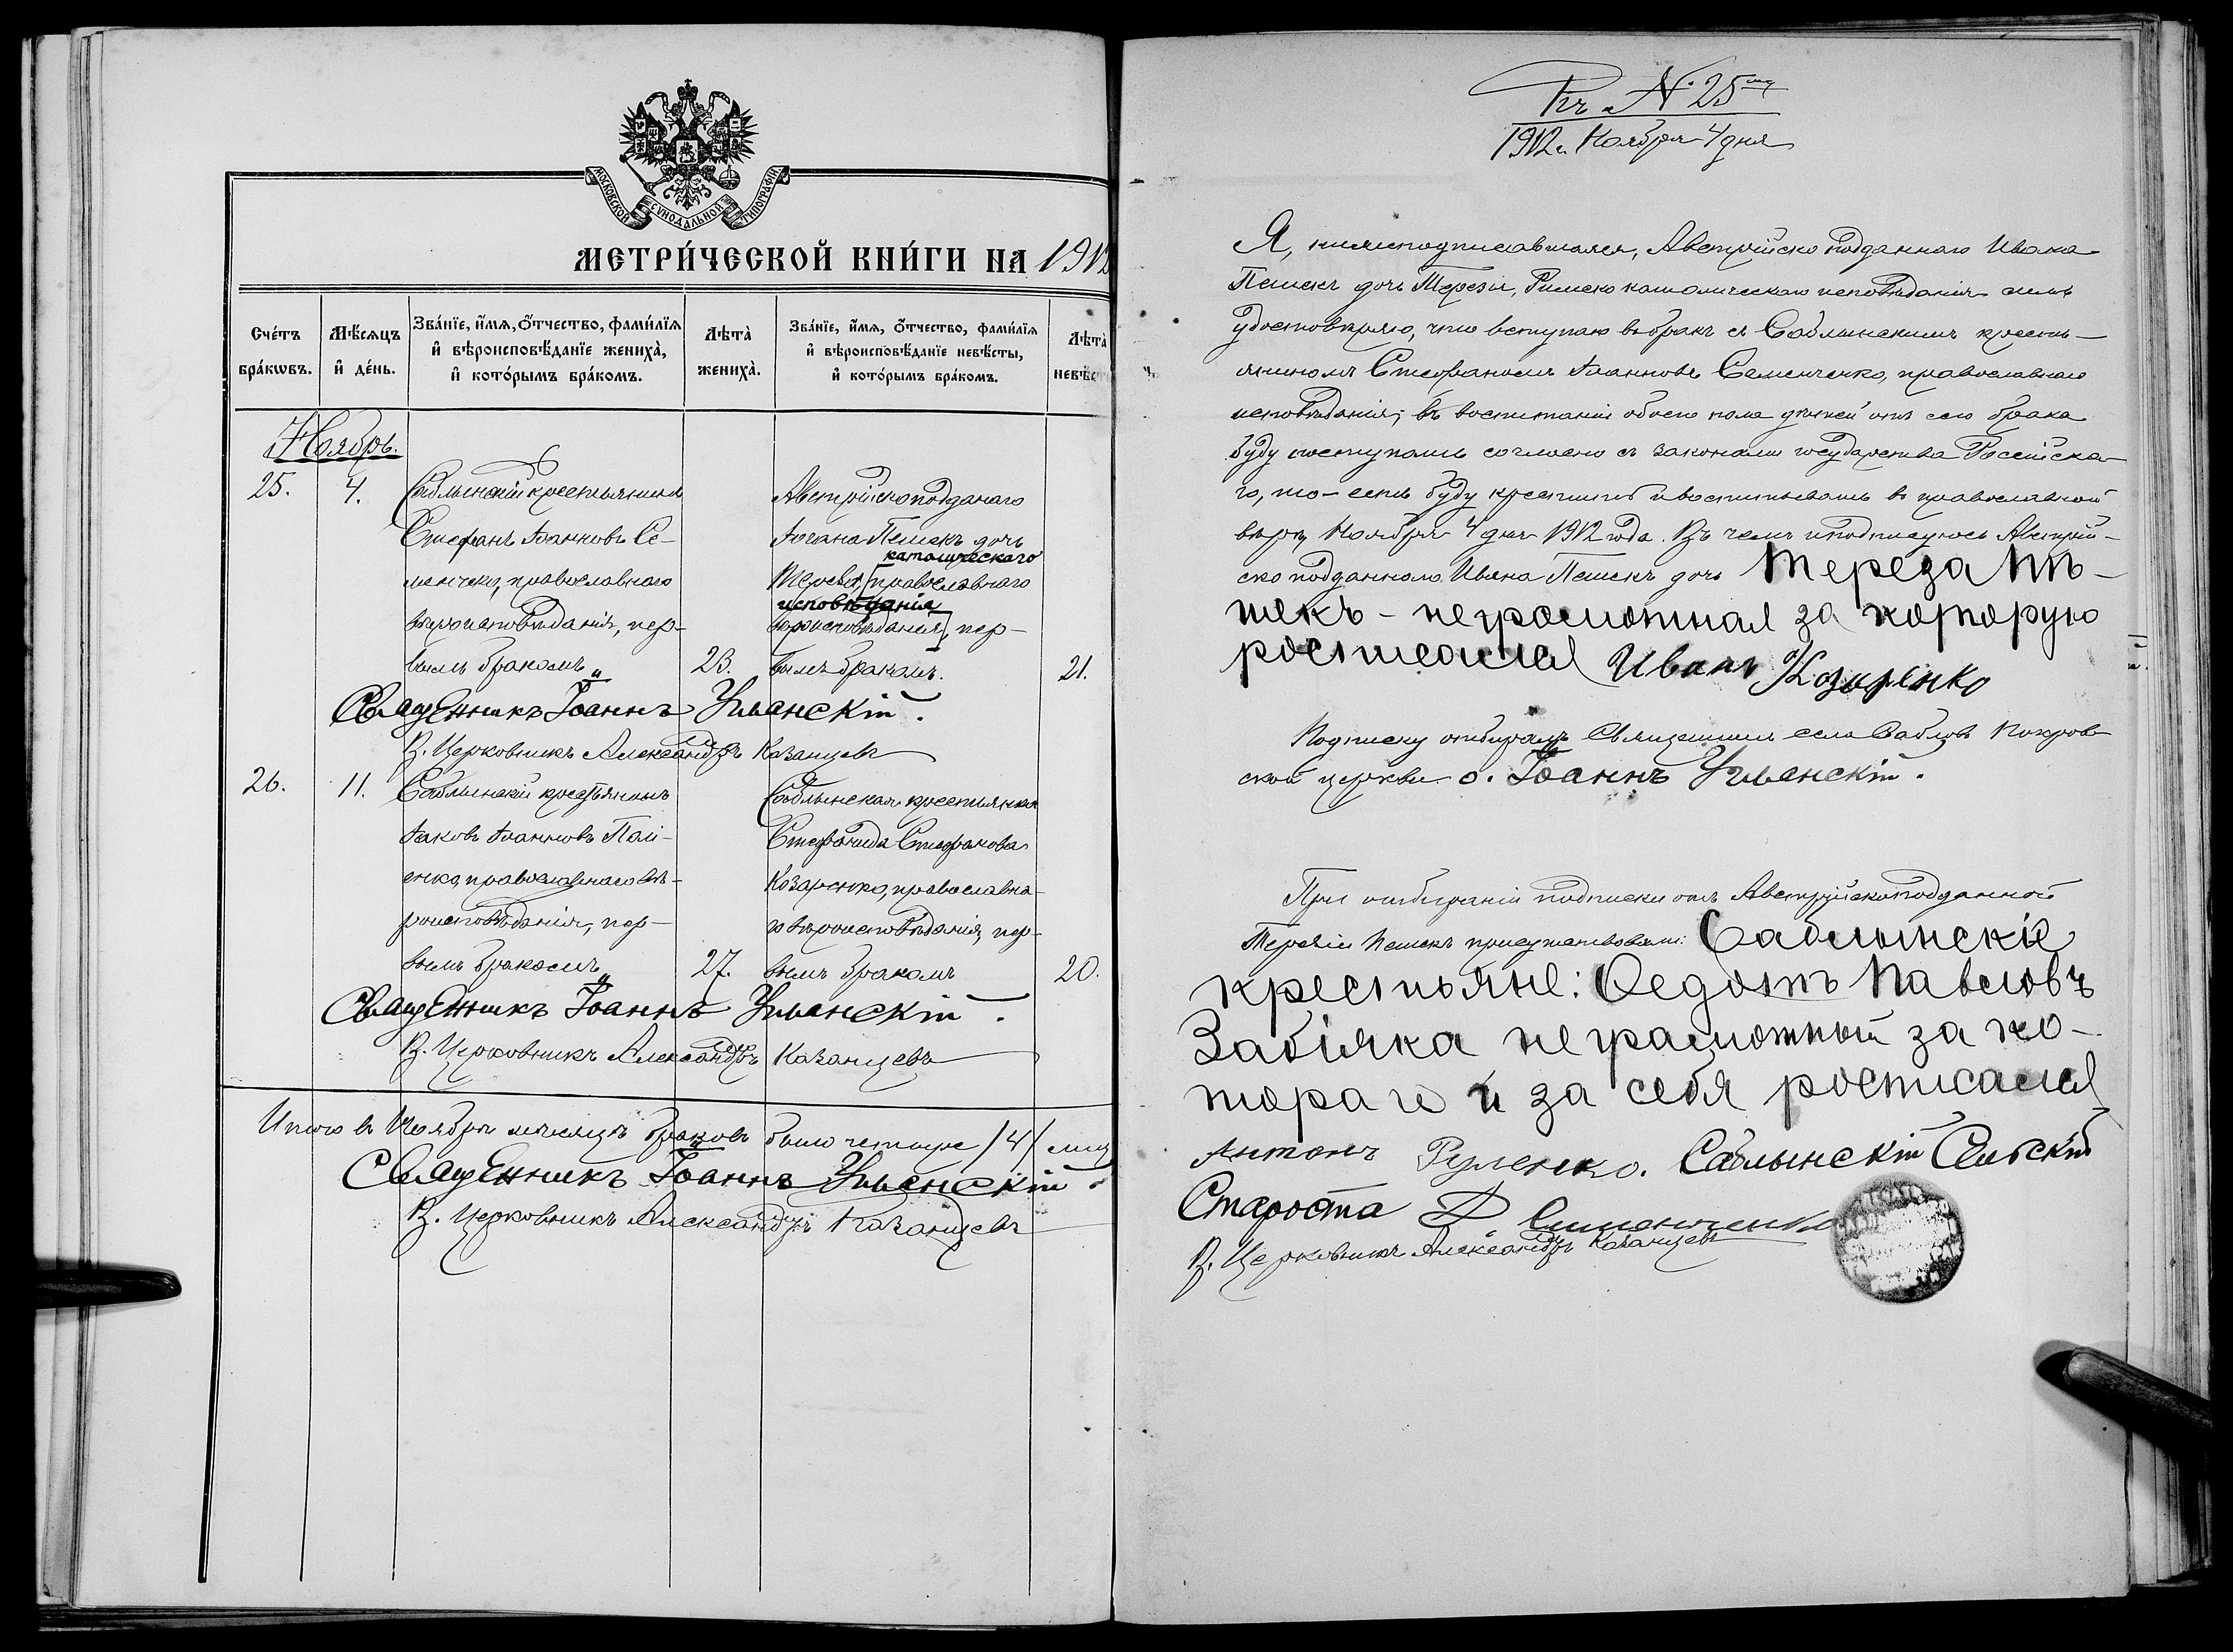 МОСКОВСКОЙ СѴНОДАЛЬНОЙ ТИПОГРАФІИ
МЕТРИ́ЧЕСКОЙ КНИ́ГИ НА 1912
Сче́тъ бра́кѡвъ.
Мѣ́сяцъ и де́нь.
Зва́нїе, и́мя, о́тчество, фами́лїя и вѣроисповѣ́данїе жениха̀, и кото́рымъ бра́комъ.
Лѣта̀ жениха̀.
Зва́нїе, и́мя, о́тчество, фами́лїя и вѣроисповѣ́данїе невѣ́сты, и кото́рымъ бра́комъ.
Лѣта̀ невѣст
Ноябрь.
25.
4.
Саблынскій крестьянинъ
Стефанъ Іоанновъ Се-
менченко, православнаго
вѣроисповѣданія, пер-
вымъ бракомъ
23.
Австрійскоподданаго
Іогана Пешекъ дочь
католическаго
Терезія [православнаго
исповѣданія
вѣроисповѣданія], пер-
вымъ бракомъ.
21.
Священникъ Іоаннъ Ульянскій.
В. Церковникъ Александръ Казанцевъ
26.
11.
Саблынскій крестьянинъ
Іаковъ Іоанновъ Пали-
енко, православнаго вѣ-
роисповѣданія, пер-
вымъ бракомъ
27.
Саблынская крестьянка
Стефанида Стефанова
Козаренко, православна-
го вѣроисповѣданія, пер-
вымъ бракомъ
20.
Священникъ Іоаннъ Ульянскій.
В. Церковникъ Александръ Казанцевъ
Итого въ Ноябрѣ мѣсяцѣ браковъ было четыре /4/
Священникъ Іоаннъ Ульянскій.
В. Церковникъ Александръ Казанцевъ
Къ № 25му
1912 г. Ноября 4 дня
Я, нижеподписавшаяся, Австрійско подданнаго Ивана
Пешекъ дочь Терезія, Римско католическаго исповѣданія симъ
удостовѣряю, что вступаю въ бракъ съ Саблынскимъ кресть-
яниномъ Стефаномъ Іоанновъ Семенченко, православнаго
исповѣданія; въ воспитаніи обоего пола дѣтей отъ сего брака
буду поступать согласно съ законами государства Россійска-
го, то-есть буду крестить и воспитывать въ православной
вѣрѣ, Ноября 4 дня 1912 года. Въ чемъ и подписуюсь Австрій-
ско подданнаго Ивана Пешекъ дочь Тереза Пѣ-
шекъ - неграмотная за которую
росписался Иванъ Козыренко
Подписку отбиралъ Священникъ села Саблов Покров-
ской церкви о. Іоаннъ Ульянскій.
При отбираніи подписки отъ Австрійскоподданной
Терезіи Пешекъ присутствовали: Саблынскіе
крестьяне: Ѳедотъ Павловъ
Забіяка неграмотный за ко-
тораго и за себя росписался
Антонъ Руленко. Саблынскій Сельскій
Староста
В. Церковникъ Александръ Казанцевъ